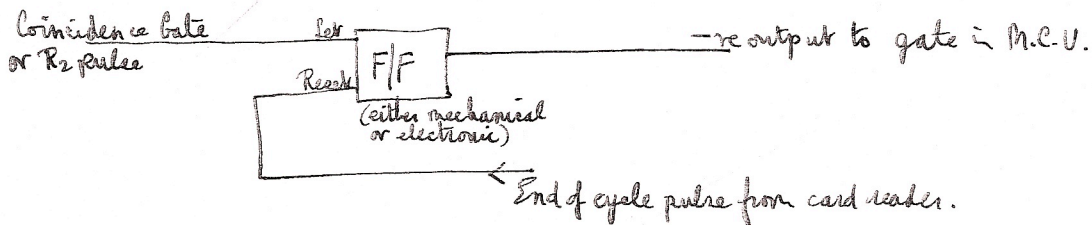 Coincidence Gate
or R2 pulse
Set
Reset
F/F
(either mechanical
or electronic)
-ve output to gate in M.C.U.
End of cycle pulse from card reader.